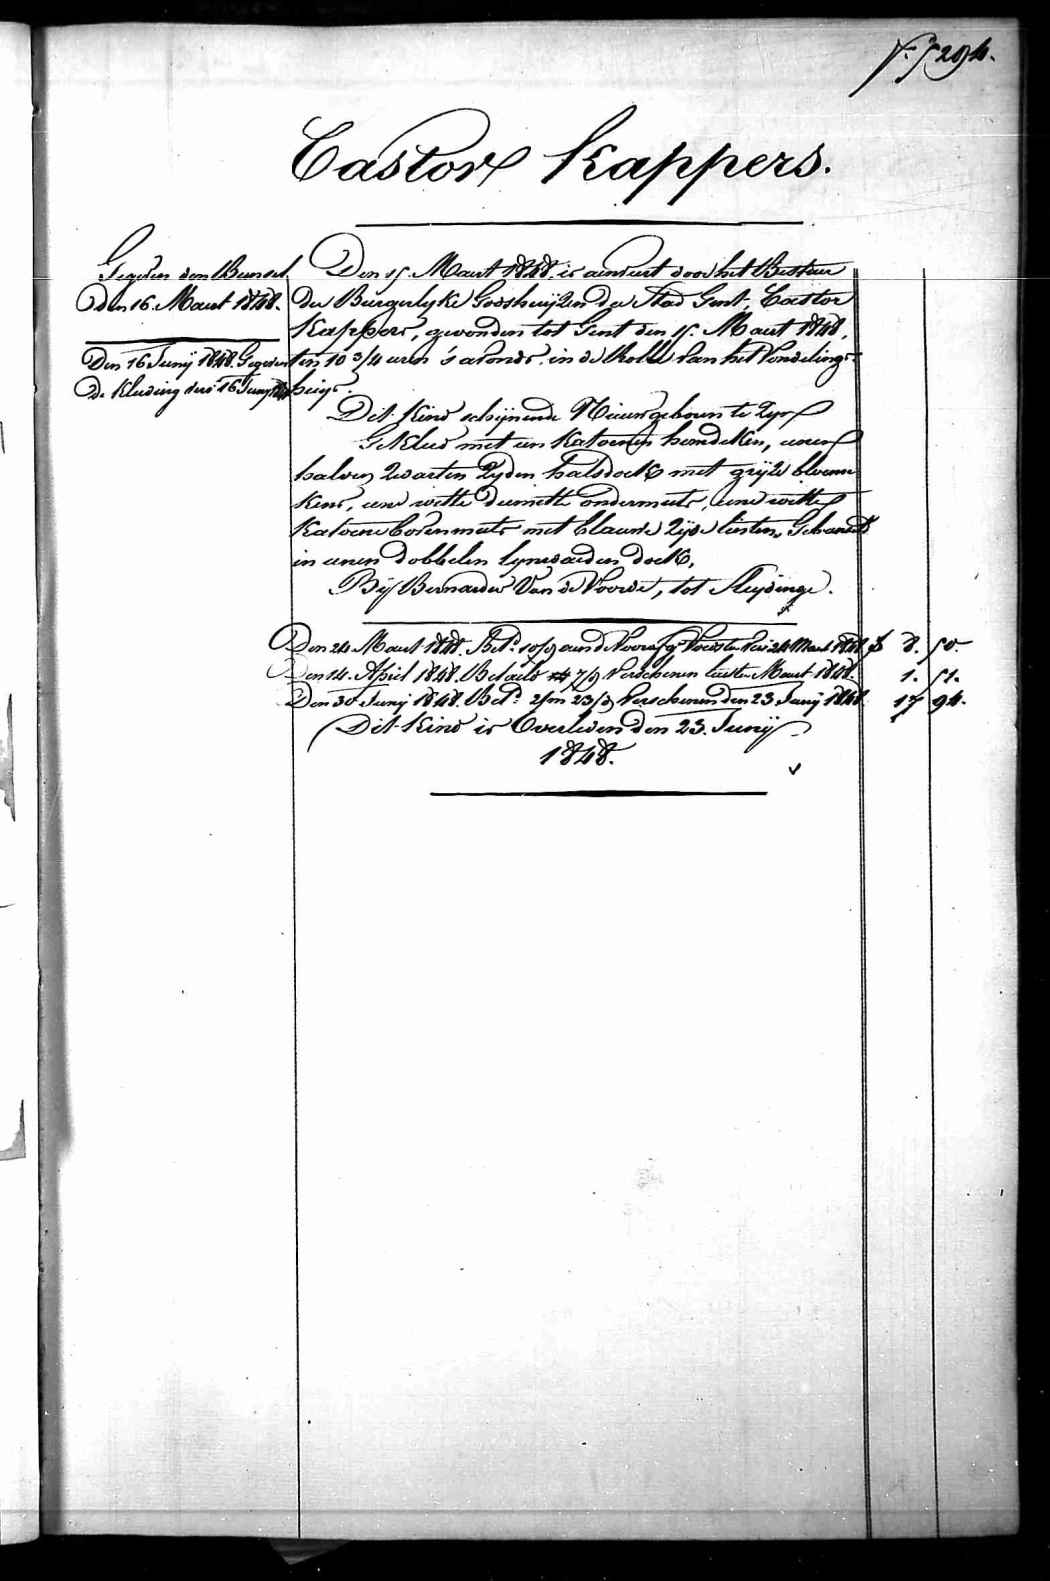 294.
Castor Kappers.
Gegeven den Bunsel
den 16. Maert 1848.
Den 16 Junij 1848. Gegeven
de Kleeding
Den 15. Maert 1848. is aenveert door het Bestuer
der Burgerlyke Godshuijzen der Stad Gent, Castor
Kappers, gevonden tot Gent den 15. Maert 1848,
ten 10 3/4 uren 's avonds in de Rolle van het Vondelings-
huijs.
Dit Kind schijnende Nieuwgeboren te Zyn
Gekleed met een Katoenen hemdeken, eenen
halven Zwarten Zyden halsdoek met grijze bloem
kens, eene witte dumette ondermuts, eene witte
Katoene bovenmuts met blauwe Zijde linten, Gebonden
in eenen dobbelen lynwaeden doek,
Bij Bernardus Van de Voorde, tot Sleydinge.
Den 24 Maert 1848. Bet.d 10/9 aen de Voorsz. 24 Maert 1848 f 8. 50.
Den 14. April 1848. Betaeld 7/9 Verschenen Maert 1848. 1. 51.
Den 30 Junij 1848. Bet.d 2/m 23/9 Verschenen den 23 Junij 1848 17 94.
Dit Kind is Overleden den 23. Junij
1848.